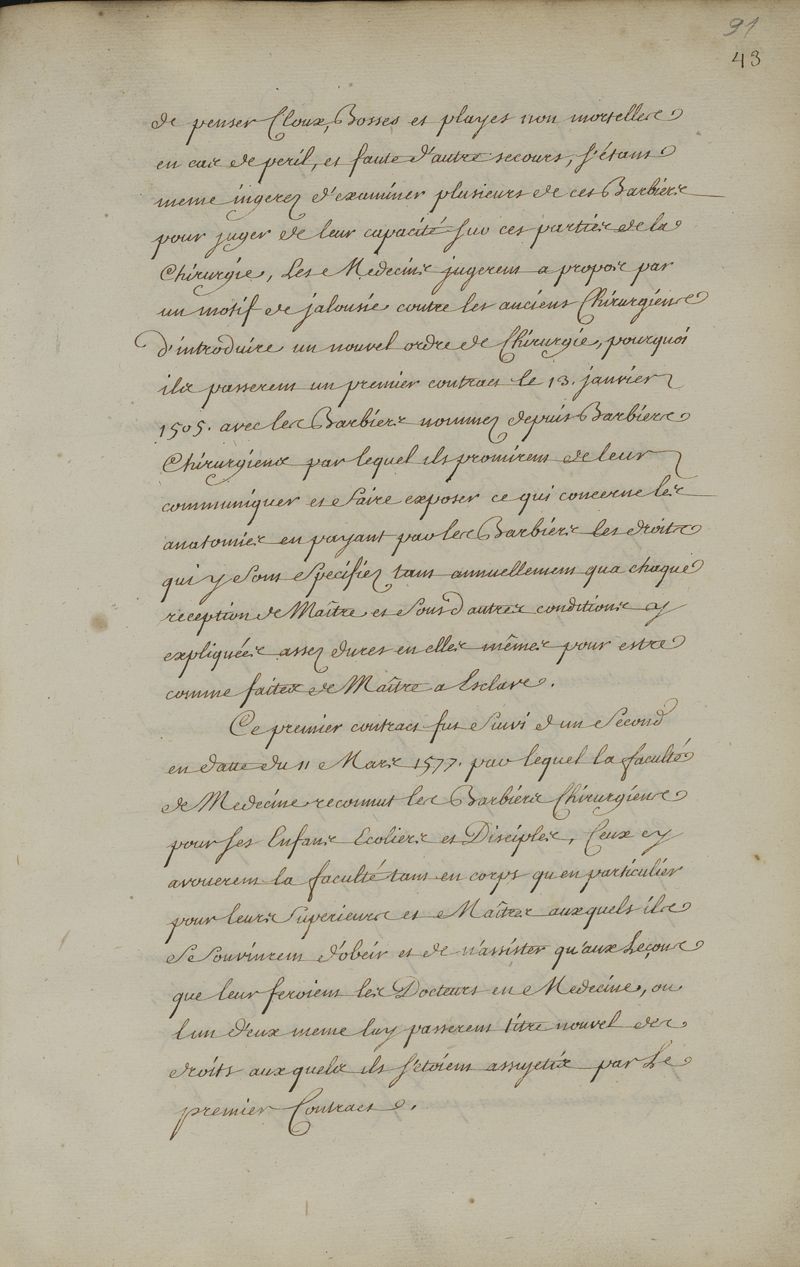 91
43
de penser Cloux, Bosses et playes non mortelles
en cas de peril, et faute d'autre secours, s'étans
meme ingerez d'examiner plusieurs de ces Barbiers
pour juger de leur capacité sur ces parties de la
Chirurgie, les Medecins jugerent a propos par
un motif de jalousie contre les anciens Chirurgiens
d'introduire un nouvel ordre de Chirurgie, pourquoi
ils passerent un premier contract le 13. janvier
1505. avec les Barbiers nommez depuis Barbiers
Chirurgiens par lequel ils promirent de leur
communiquer et faire exposer ce qui concerne les
anatomies en payant par les Barbiers les droits
qui y sont specifiez tant annuellement qua chaque
reception de Maître et sous d'autres conditions y
expliquées assez dures en elles mêmes pour estre
comme faites de Maître a Esclave.
Ce premier contract fut suivi d'un second
en datte du 11 Mars 1577. par lequel la faculté
de Medecine reconnut les Barbiers Chirurgiens
pour ses Enfans Ecoliers et Disciples, Ceux cy
avouerent la faculté tant en corps qu'en particulier
pour leurs Superieurs et Maîtres auxquels ils
se souvinrent d'obeir et de n'assister qu'aux Leçons
que leur feroient les Docteurs en Medecine, ou
l'un d'eux meme luy passerent titre nouvel des
droits auxquels ils s'etoient assujetis par le
premier Contract.